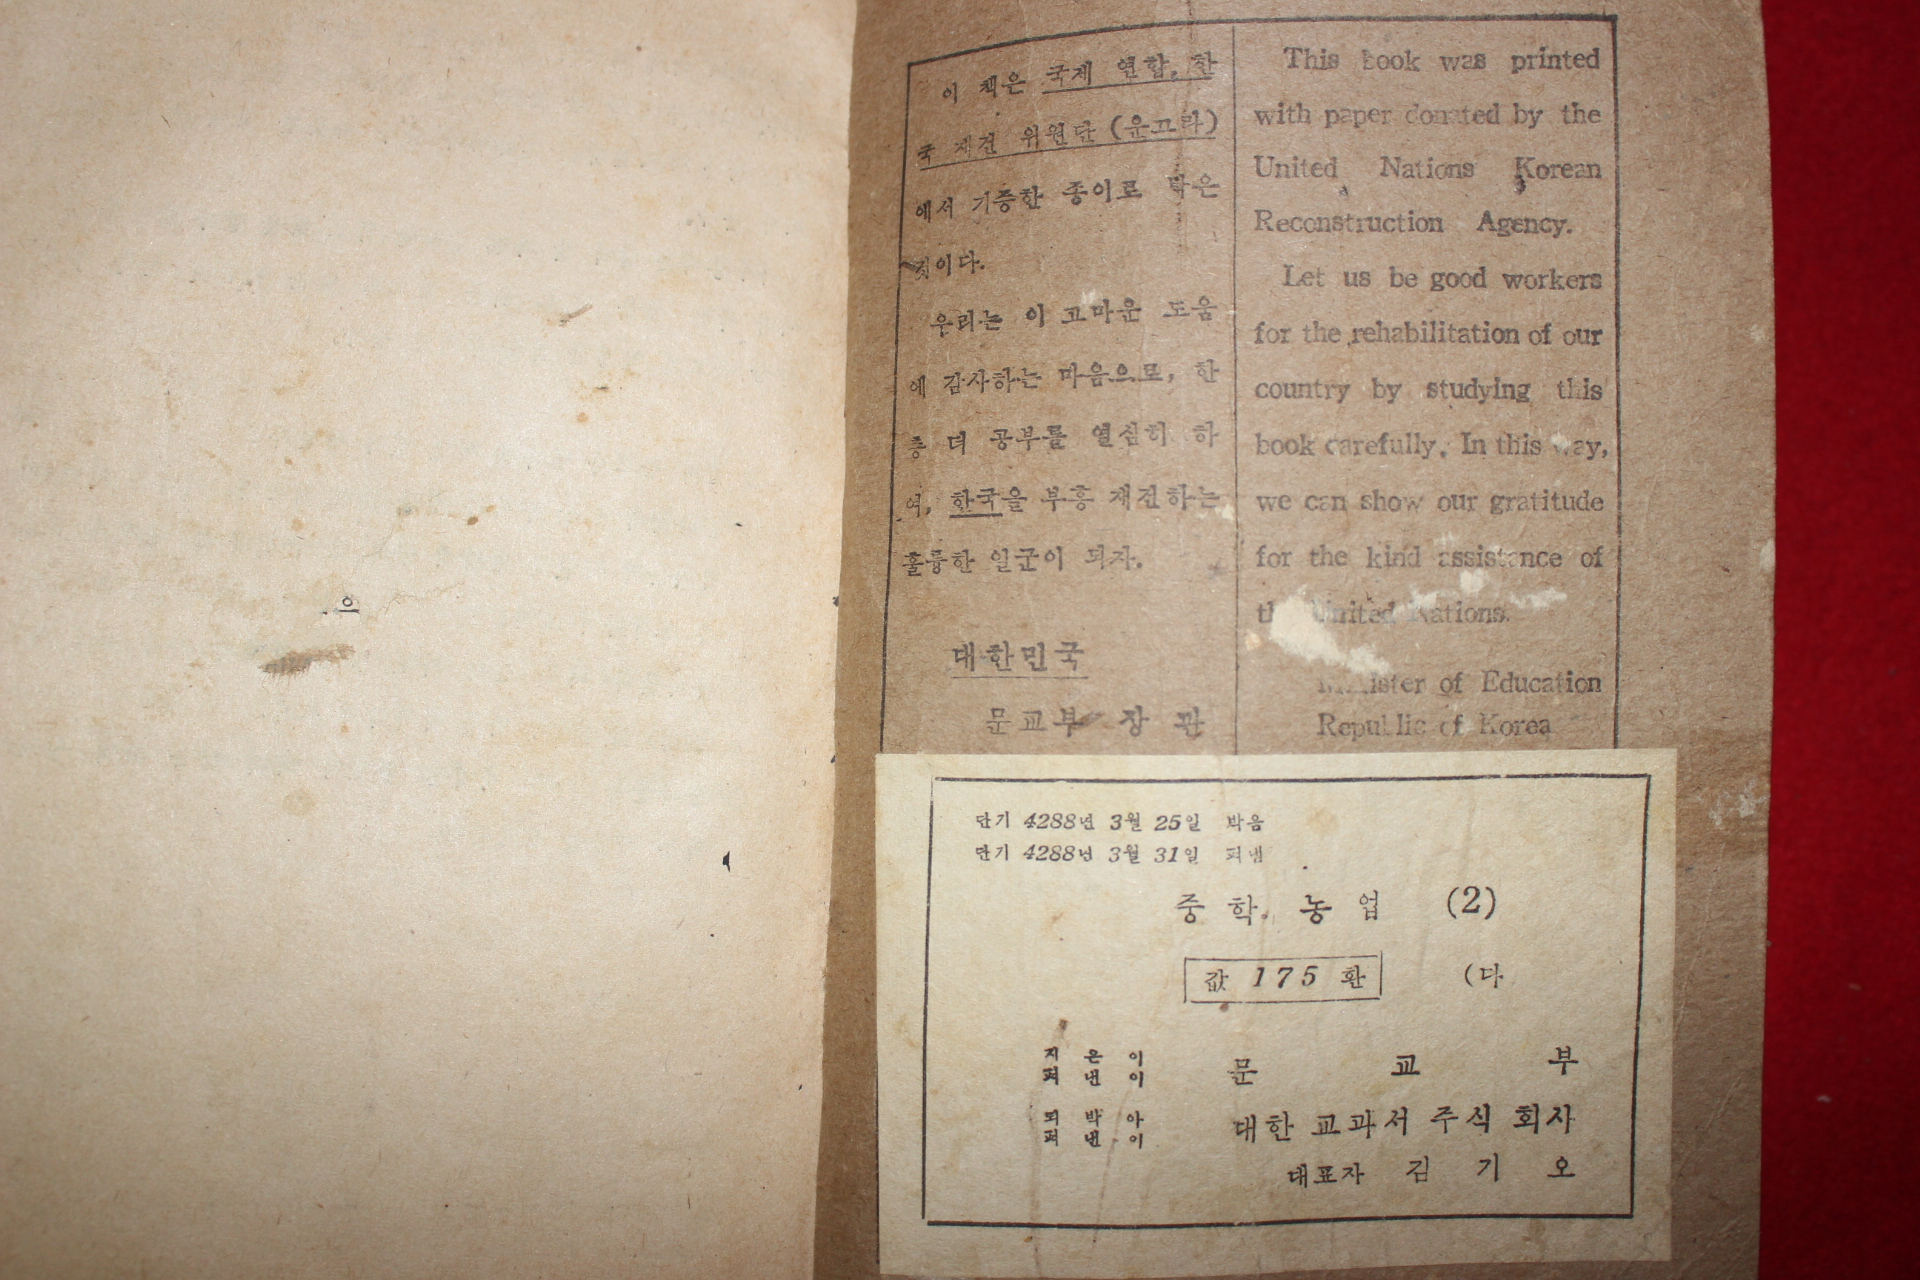 으
이 책은 국제 연합, 한
국 재건 위원단 (운끄라)
에서 기증한 종이로 박은
것이다.
우리는 이 고마운 도움
에 감사하는 마음으로, 한
층 더 공부를 열심히 하
여, 한국을 부흥 재건하는
훌륭한 일군이 되자.
대한민국
문교부 장관
This book was printed
with paper donated by the
United Nations Korean
Reconstruction Agency.
Let us be good workers
for the rehabilitation of our
country by studying this
book carefully. In this way,
we can show our gratitude
for the kind assistance of
the United Nations.
Minister of Education
Republic of Korea
단기 4288년 3월 25일 박음
단기 4288년 3월 31일 펴냄
중학 농업 (2)
값 175 환
(다
지은이
펴낸이
문교부
되박아
펴낸이
대한 교과서 주식 회사
대표자 김기오